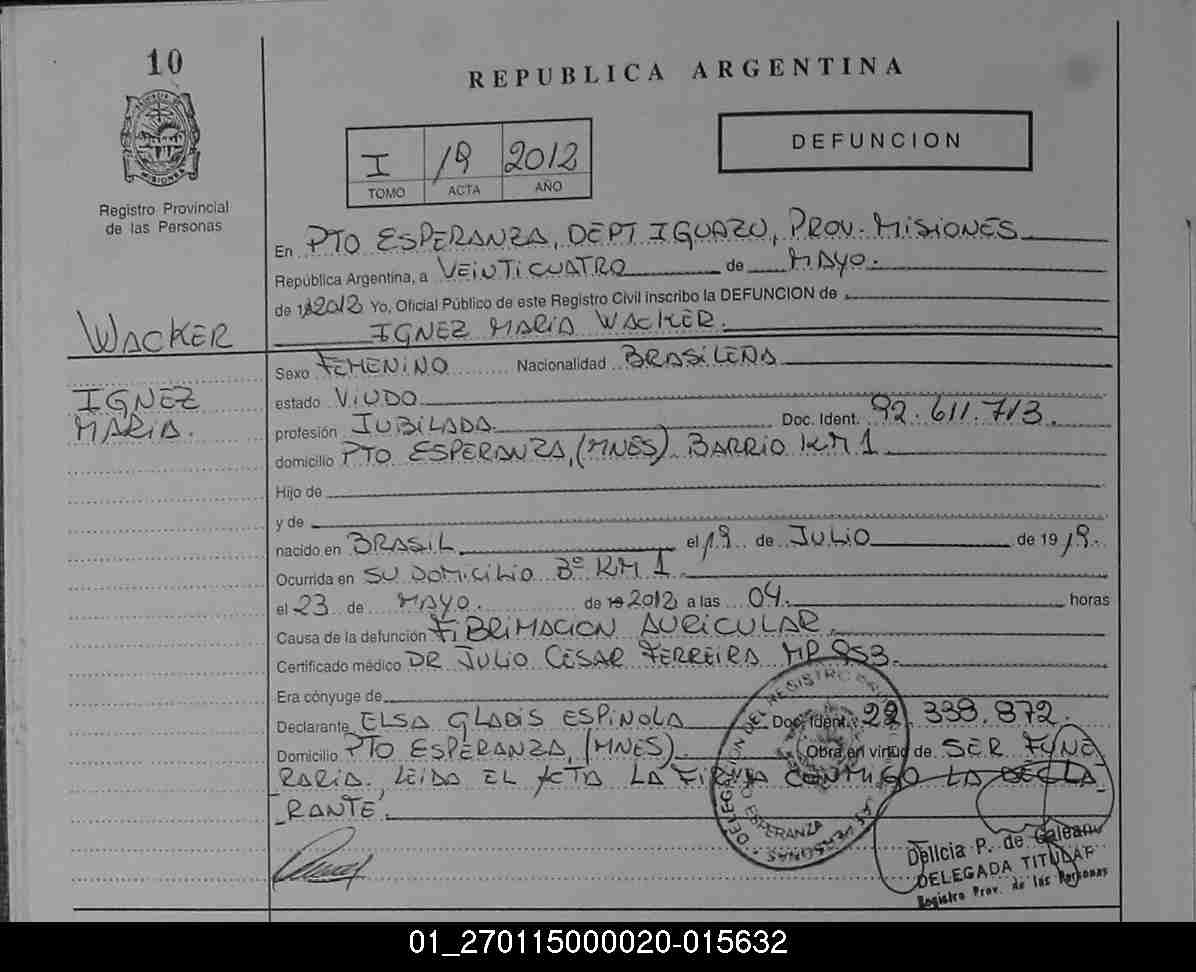 10
REPUBLICA ARGENTINA
MISIONES
Registro Provincial
de las Personas
I 19 2012
TOMO ACTA AÑO
DEFUNCION
En PTO ESPERANZA, DEPT IGUAZU, PROV. MISIONES
República Argentina, a VEINTICUATRO de MAYO.
de 2012 Yo, Oficial Público de este Registro Civil inscribo la DEFUNCION de
IGNEZ MARIA WACKER.
WACKER
IGNEZ
MARIA.
Sexo FEMENINO Nacionalidad BRASILEÑA
estado VIUDO
profesión JUBILADA Doc. Ident. 92.611.713.
domicilio PTO ESPERANZA, (MNES) BARRIO KM 1
Hijo de
y de
nacido en BRASIL el 19 de JULIO de 19 19.
Ocurrida en SU DOMICILIO Bº KM 1
el 23 de MAYO. de 2012 a las 04. horas
Causa de la defunción FIBRIMACION AURICULAR.
Certificado médico DR JULIO CESAR FERREIRA MP 953.
Era cónyuge de
Declarante ELSA GLADIS ESPINOLA Doc. Ident. 22.338.872.
Domicilio PTO ESPERANZA, (MNES) Obra en virtud de SER FUNE
RARIA. LEIDA EL ACTA LA FIRMA CONMIGO LA DECLA
RANTE.
DELEGACION DEL REGISTRO
DE LAS PERSONAS
ESPERANZA
Delicia P. de Galeano
DELEGADA TITULAR
Registro Prov. de las Personas
01_270115000020-015632